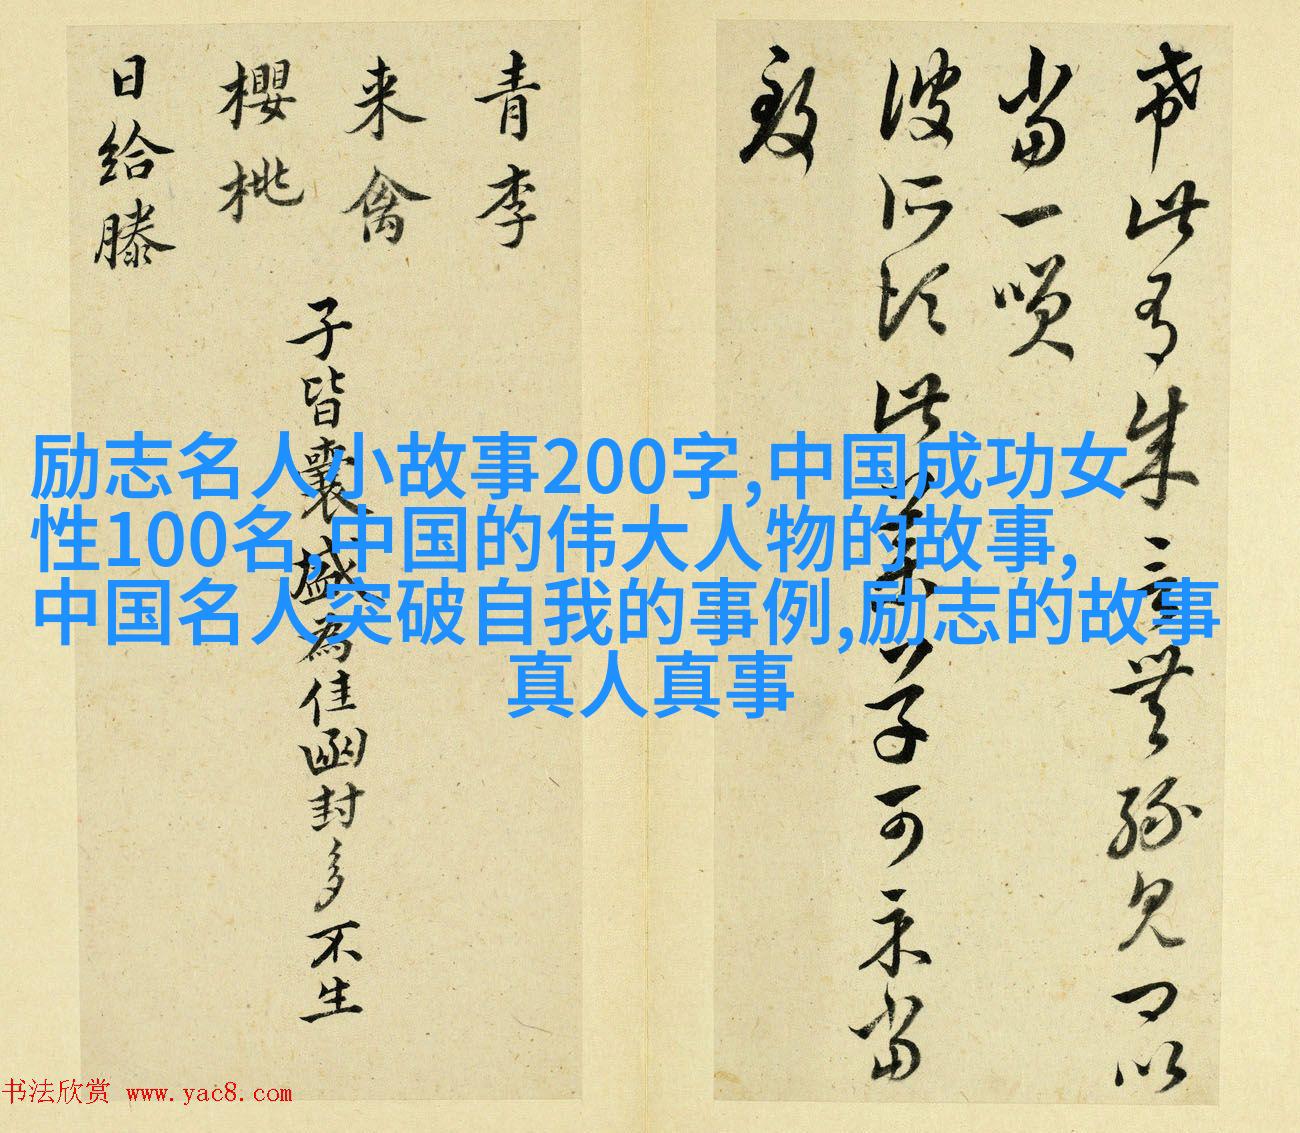 希此有成言無緣見卿以
當一咲
彼所須此藥草可示當
致
青李
来禽
櫻桃
日給滕
子皆囊盛為佳函封多不生
励志名人小故事200字,中国成功女
性100名,中国的伟大人物的故事,
中国名人突破自我的事例,励志的故事
真人真事
书法欣赏 www.yac8.com